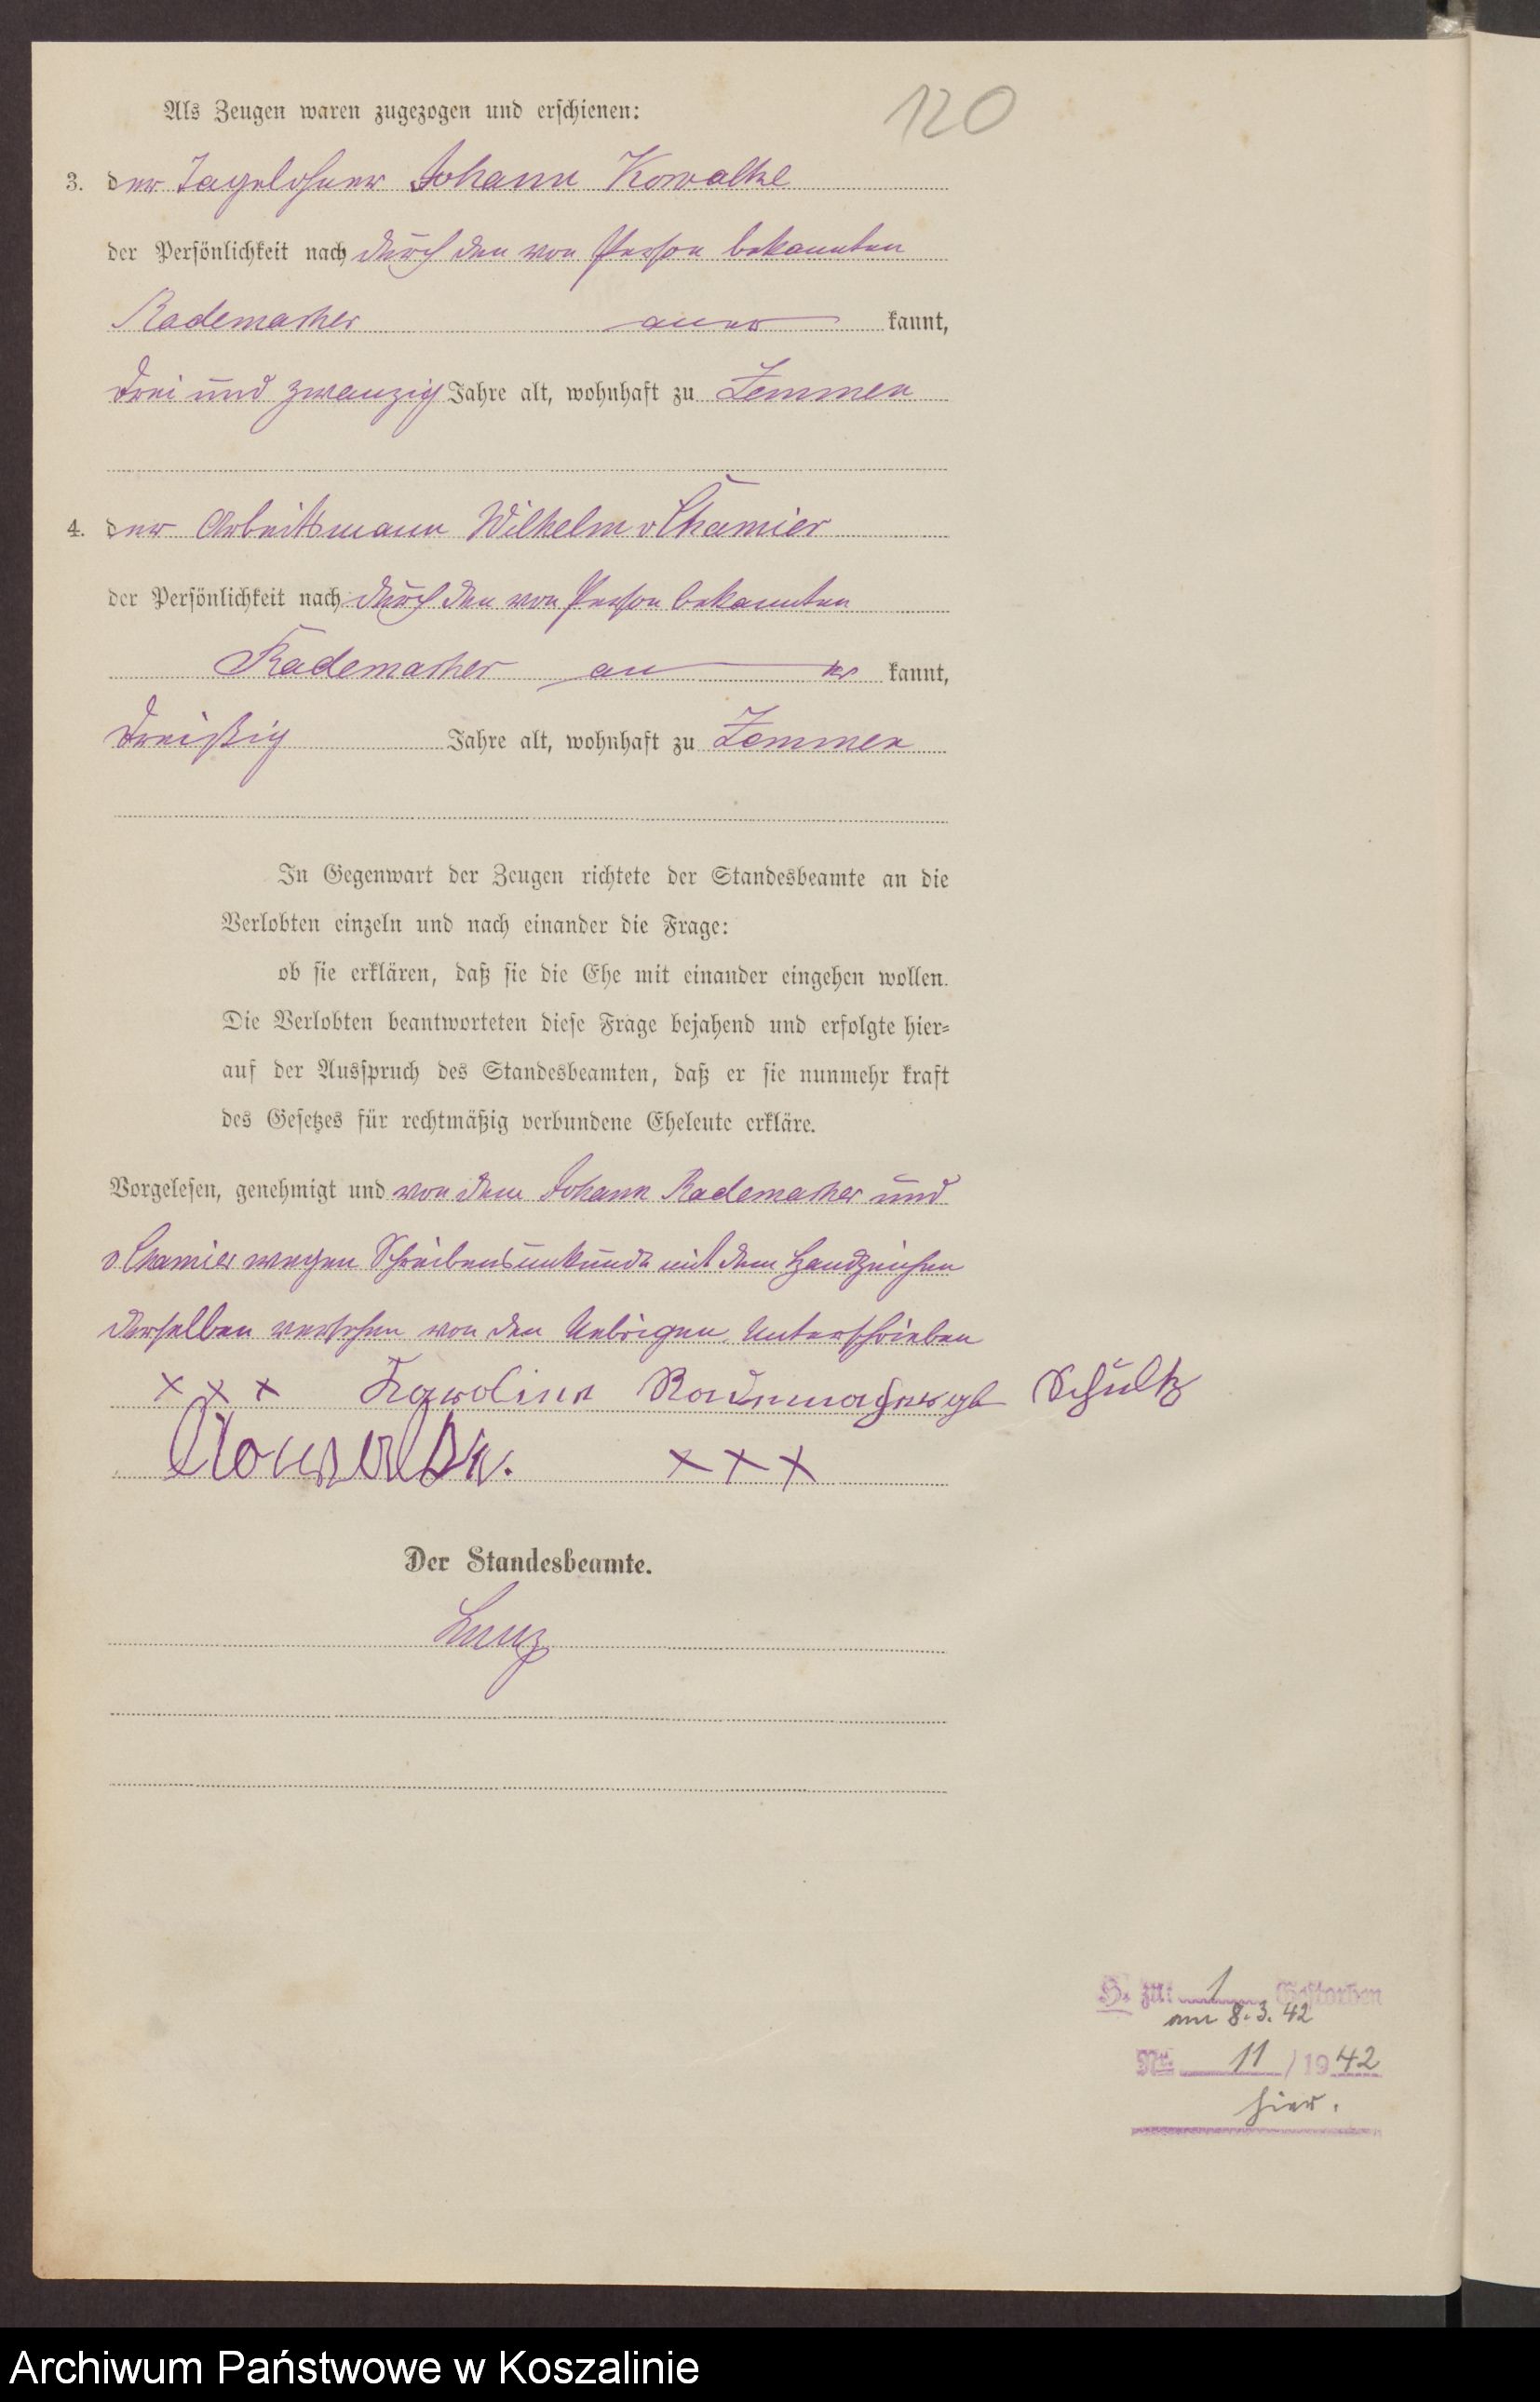 120
Als Zeugen waren zugezogen und erschienen:
3. der Tagelohner Johann Kowalke
der Persönlichkeit nach durch den von Person bekannten
Rademacher aner kannt,
drei und zwanzig Jahre alt, wohnhaft zu Zemmen
4. der Arbeitsmann Wilhelm v Chamier
der Persönlichkeit nach durch den von Person bekannten
Rademacher an er kannt,
dreißig Jahre alt, wohnhaft zu Zemmen
In Gegenwart der Zeugen richtete der Standesbeamte an die
Verlobten einzeln und nach einander die Frage:
ob sie erklären, daß sie die Ehe mit einander eingehen wollen.
Die Verlobten beantworteten diese Frage bejahend und erfolgte hier-
auf der Ausspruch des Standesbeamten, daß er sie nunmehr kraft
des Gesetzes für rechtmäßig verbundene Eheleute erkläre.
Vorgelesen, genehmigt und von dem Johann Rademacher und
v Chamier wegen Schreibensunkunde mit dem Handzeichen
derselben versehen von den Uebrigen unterschrieben
x x x Karoline Rademacher geb Schultz
x x x
Der Standesbeamte.
H. zu: 1 Gestorben
am 8.3.42
Nr. 11 / 1942
hier.
Archiwum Państwowe w Koszalinie